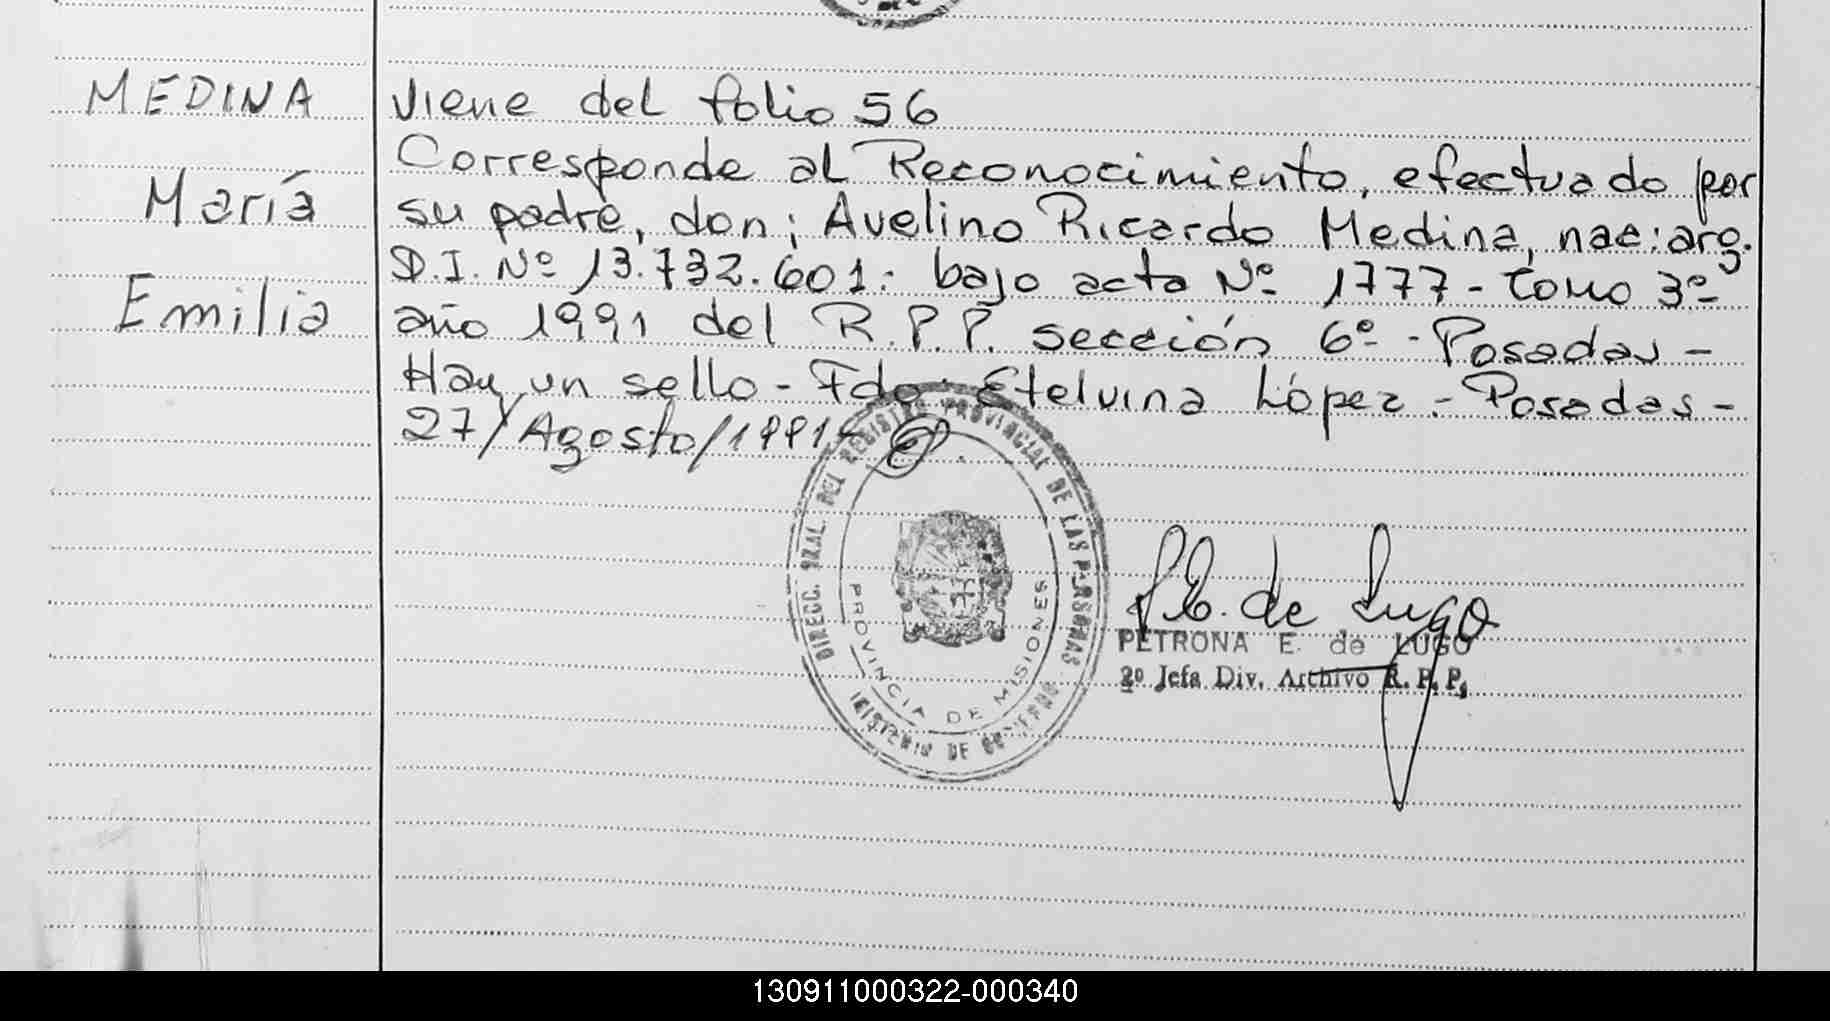 MEDINA
María
Emilia
Viene del folio 56
Corresponde al Reconocimiento, efectuado por
su padre, don; Avelino Ricardo Medina, nac: arg.
D.I. Nº 13.732.601: bajo acta Nº 1777 - tomo 3º-
año 1991 del R.P.P. sección 6º - Posadas -
Hay un sello - Fdo: Etelvina López - Posadas -
27/Agosto/1991
DIRECC. GRAL. DEL REGISTRO PROVINCIAL DE LAS PERSONAS
MINISTERIO DE GOBIERNO
PROVINCIA DE MISIONES
P.E. de Lugo
PETRONA E. de LUGO
2º Jefa Div. Archivo R. P. P.
130911000322-000340